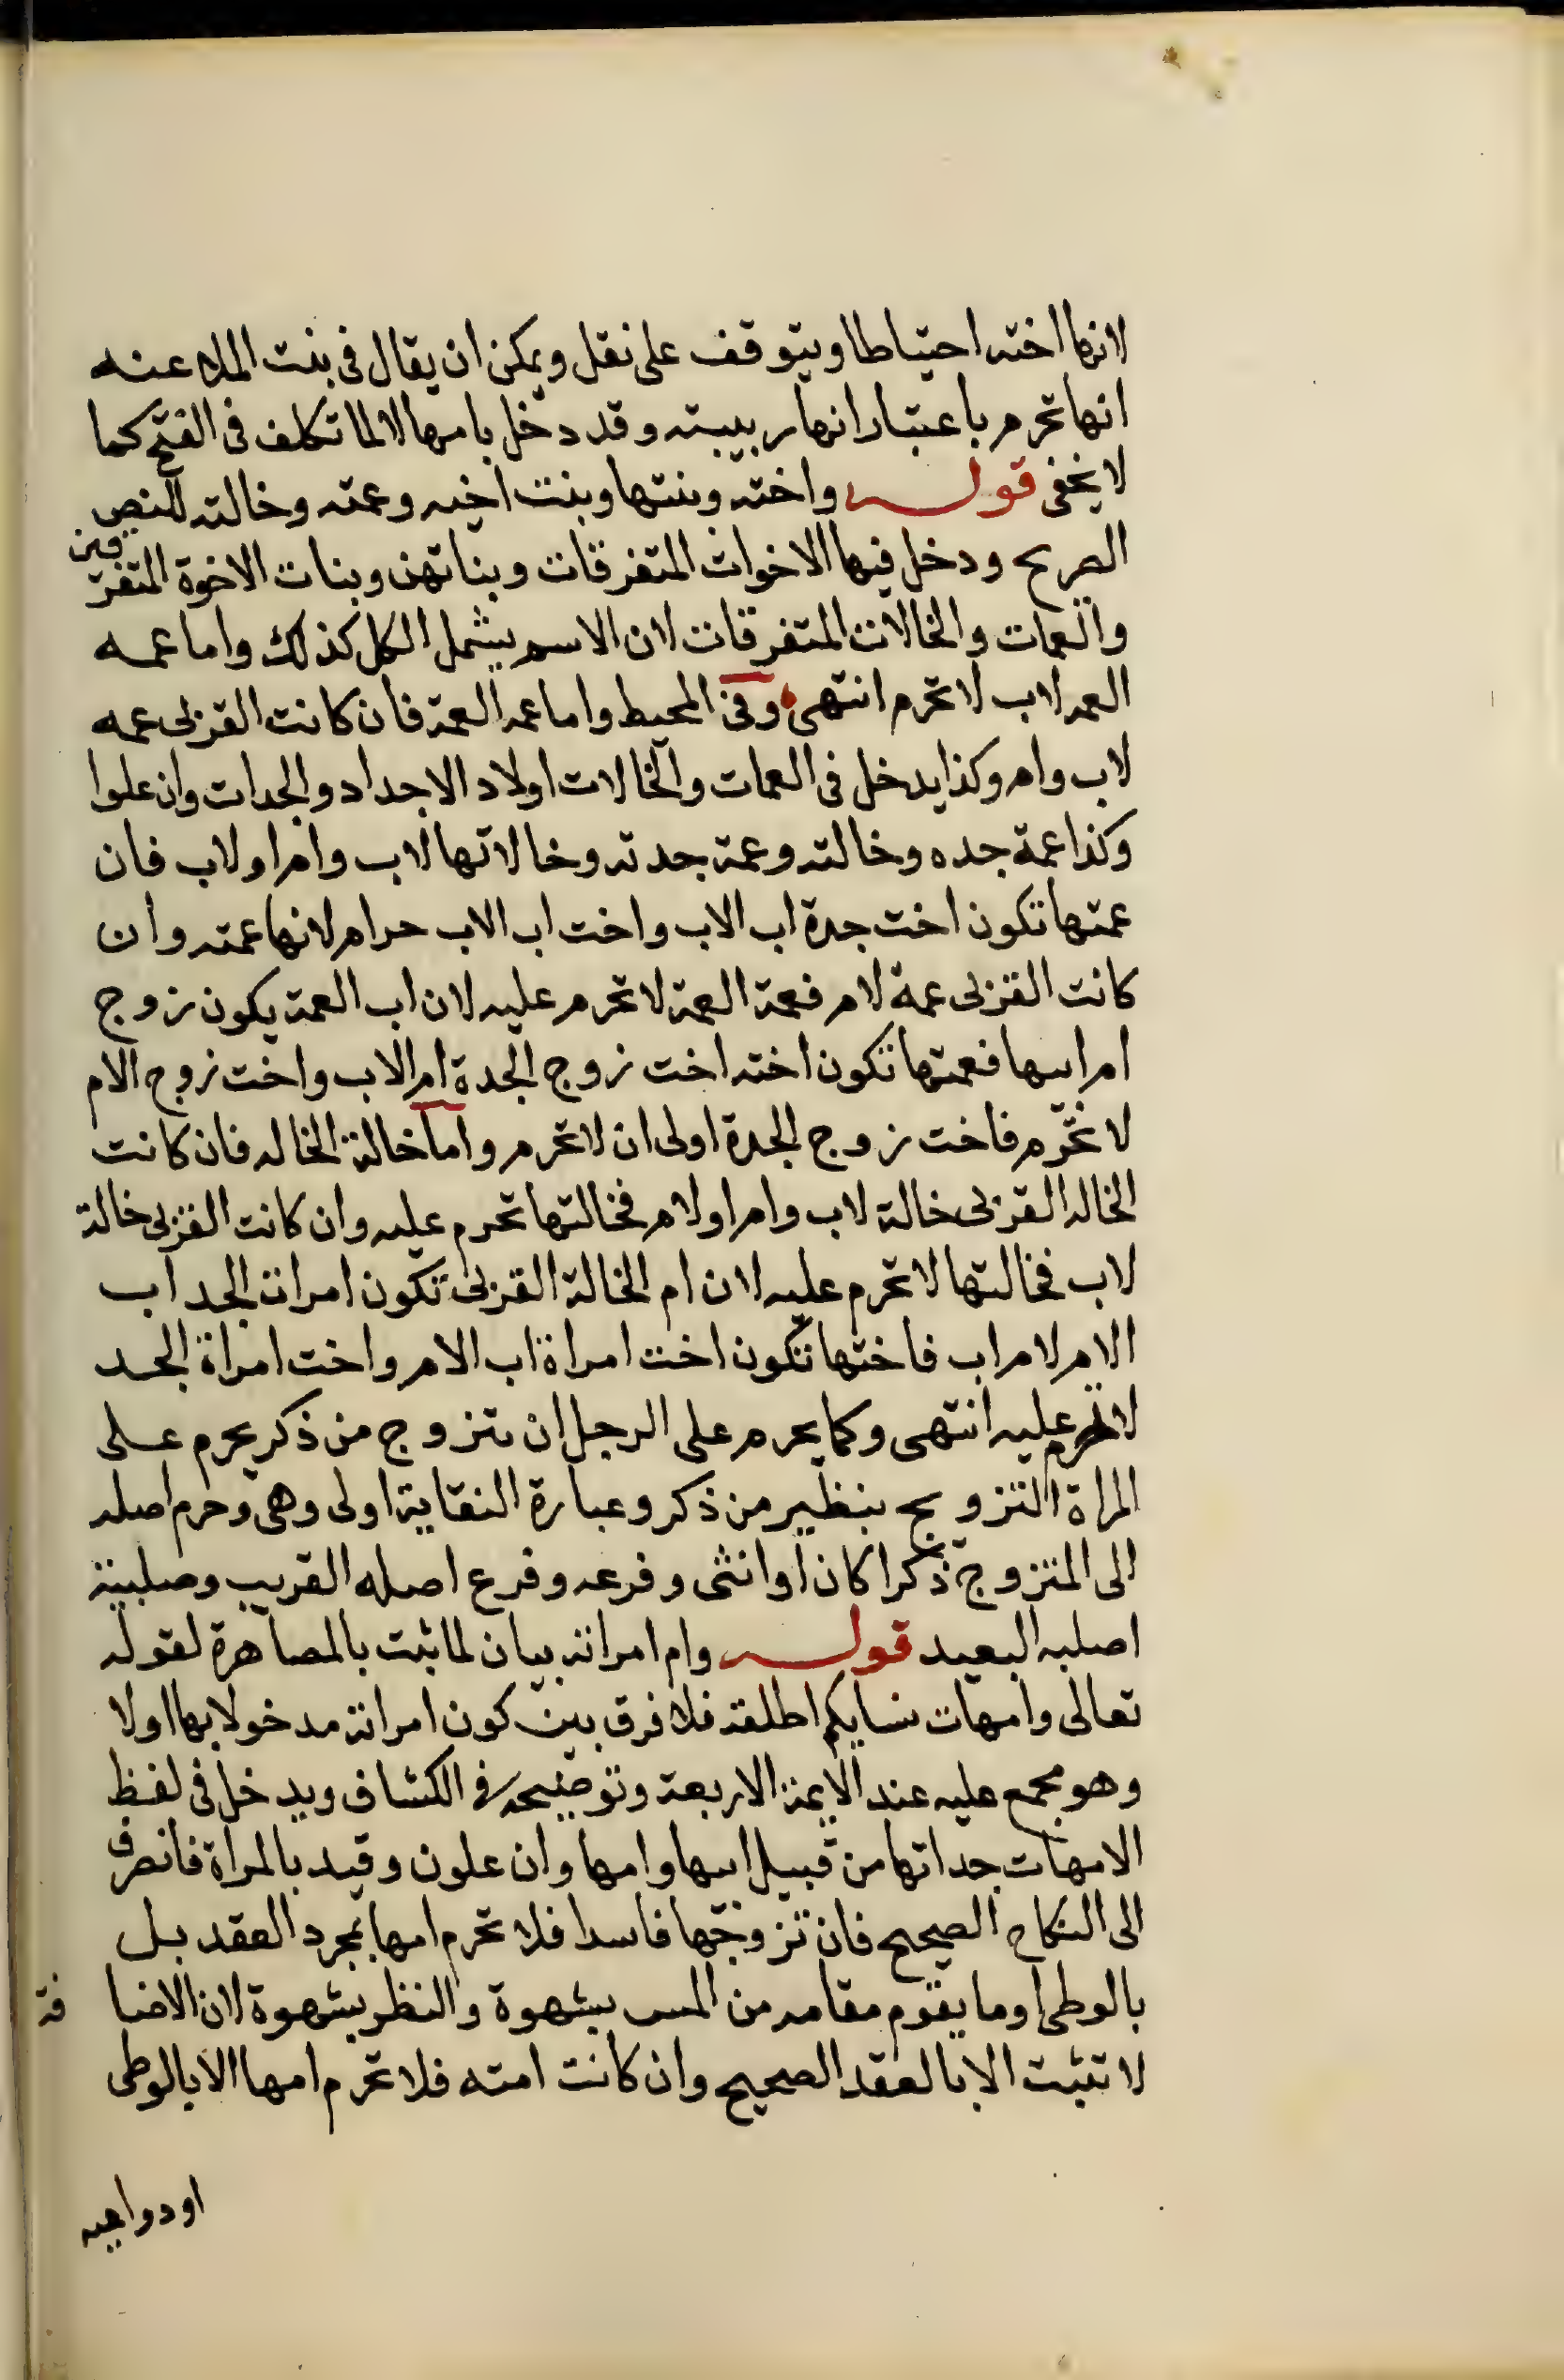 لانها اخته احتياطا ويتوقف على نقل ويمكن ان يقال فى بنت الملاعنه
انها تحرم باعتبار انها ربيبته وقد دخل بامها لا لما تكلف فى الفتح كما
لا يخفى قوله واخته وبنتها وبنت اخيه وعمته وخالته للنص
الصريح ودخل فيها الاخوات المتفرقات وبناتهن وبنات الاخوة المتفرقين
والعمات والخالات المتفرقات لان الاسم يشمل الكل كذلك واما عمه
العمه لاب لا تحرم انتهى وفى المحيط واما عمه العمة فان كانت القربى عمه
لاب وام وكذا يدخل فى العمات والخالات اولاد الاجداد والجدات وان علوا
وكذا عمة جده وخالته وعمة جدته وخالاتها لاب وام او لاب فان
عمتها تكون اخت جدة اب الاب واخت اب الاب حرام لانها عمته وان
كانت القربى عمة لام فعمة العمة لا تحرم عليه لان اب العمة يكون زوج
ام ابيها فعمتها تكون اخته اخت زوج الجدة ام الاب واخت زوج الام
لا تحرم فاخت زوج الجدة اولى ان لا تحرم واما خالة الخاله فان كانت
الخاله القربى خالة لاب وام او لام فخالتها تحرم عليه وان كانت القربى خالة
لاب فخالتها لا تحرم عليه لان ام الخالة القربى تكون امراة الجد اب
الام لا م اب فاختها تكون اخت امراة اب الام واخت امراة الجد
لا تحرم عليه انتهى وكما يحرم على الرجل ان يتزوج من ذكر يحرم على
المراة التزوج بنظير من ذكر وعبارة النقاية اولى وهى وحرم اصله
الى المتزوج ذكرا كان او انثى وفرعه وفرع اصله القريب وصلبية
اصليه البعيد قوله وام امراته بيان لما ثبت بالمصاهرة لقوله
تعالى وامهات نسايكم اطلقه فلا فرق بين كون امراته مدخولا بها اولا
وهو مجمع عليه عند الايمة الاربعة وتوضيحه فى الكشاف ويدخل فى لفظ
الامهات جداتها من قبيل ابيها وامها وان علون وقيد بالمراة فانصرف
الى النكاح الصحيح فان تزوجها فاسدا فلا تحرم امها بمجرد العقد بل
بالوطى او ما يقوم مقامه من المس بشهوة والنظر بشهوة لان الاضافة
لا تثبت الا بالعقد الصحيح وان كانت امته فلا تحرم امها الا بالوطى
او دواعيه